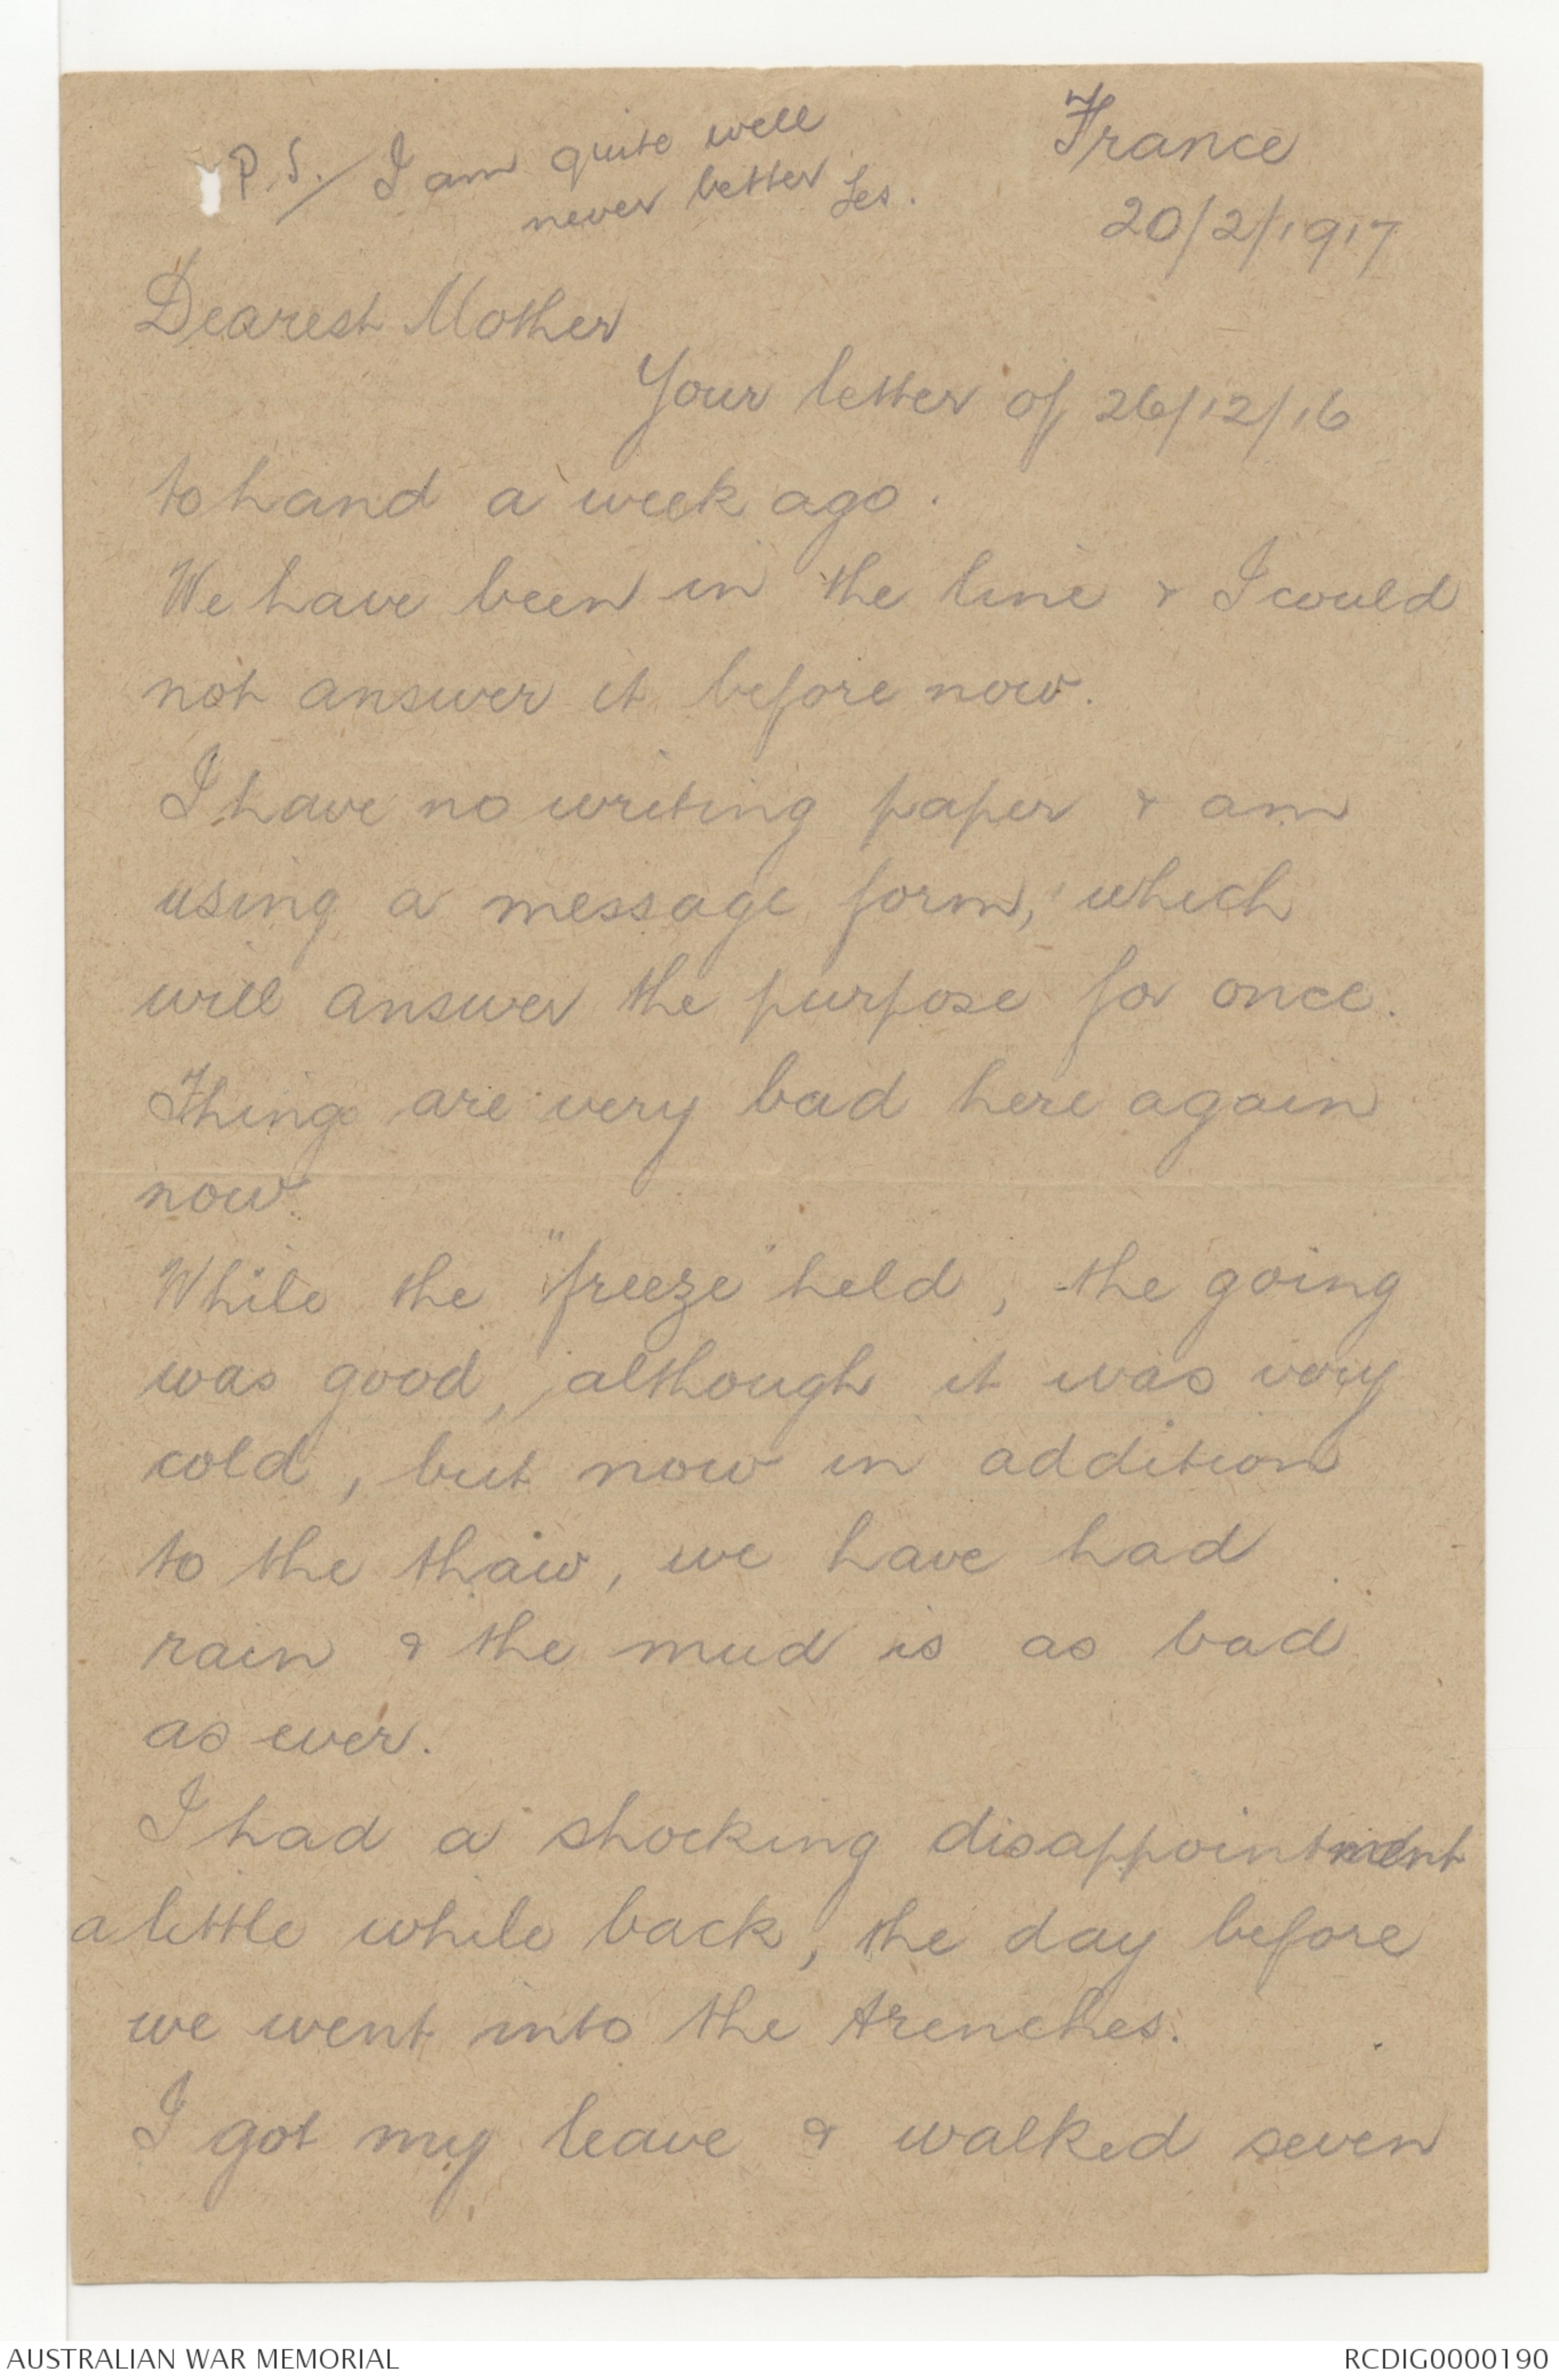 P.S./ I am quite well
never better Les.
France
20/2/1917
Dearest Mother
Your letter of 26/12/16
to hand a week ago.
We have been in the line & I could
not answer it before now.
I have no writing paper & am
using a message form, which
will answer the purpose for once.
Things are very bad here again
now.
While the "freeze" held, the going
was good, although it was very
cold, but now in addition
to the thaw, we have had
rain & the mud is as bad
as ever.
I had a shocking disappointment
a little while back, the day before
we went into the trenches.
I got my leave & walked seven
AUSTRALIAN WAR MEMORIAL
RCDIG0000190